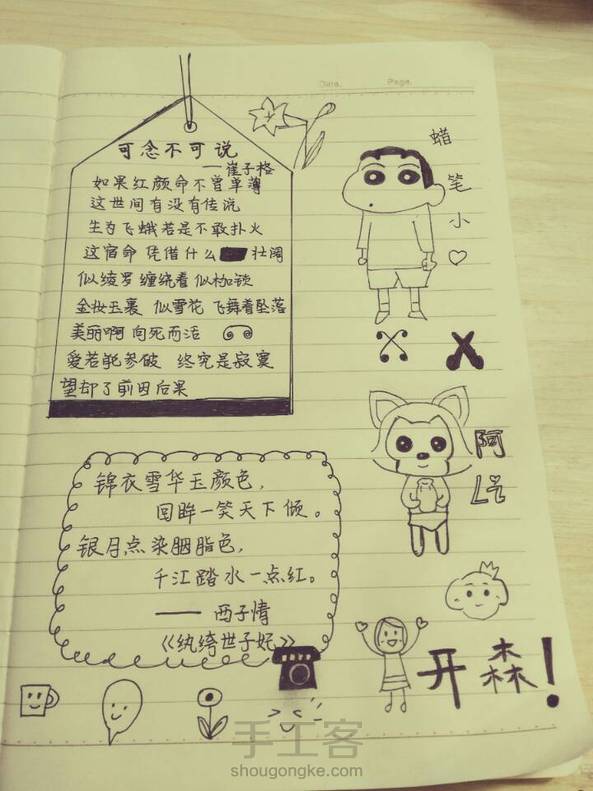 Date.
Page.
可念不可说
——崔子格
如果红颜命不曾单薄
这世间有没有传说
生为飞蛾若是不敢扑火
这宿命 凭借什么 壮阔
似绫罗 缠绕着 似枷锁
金妆玉裹 似雪花 飞舞着坠落
美丽啊 向死而活
爱若能参破 终究是寂寞
望却了前因后果
蜡
笔
小
阿
Li
锦衣雪华玉颜色,
回眸一笑天下倾。
银月点染胭脂色,
千江踏水一点红。
—— 西子情
《纨绔世子妃》
开森!
手工客
shougongke.com